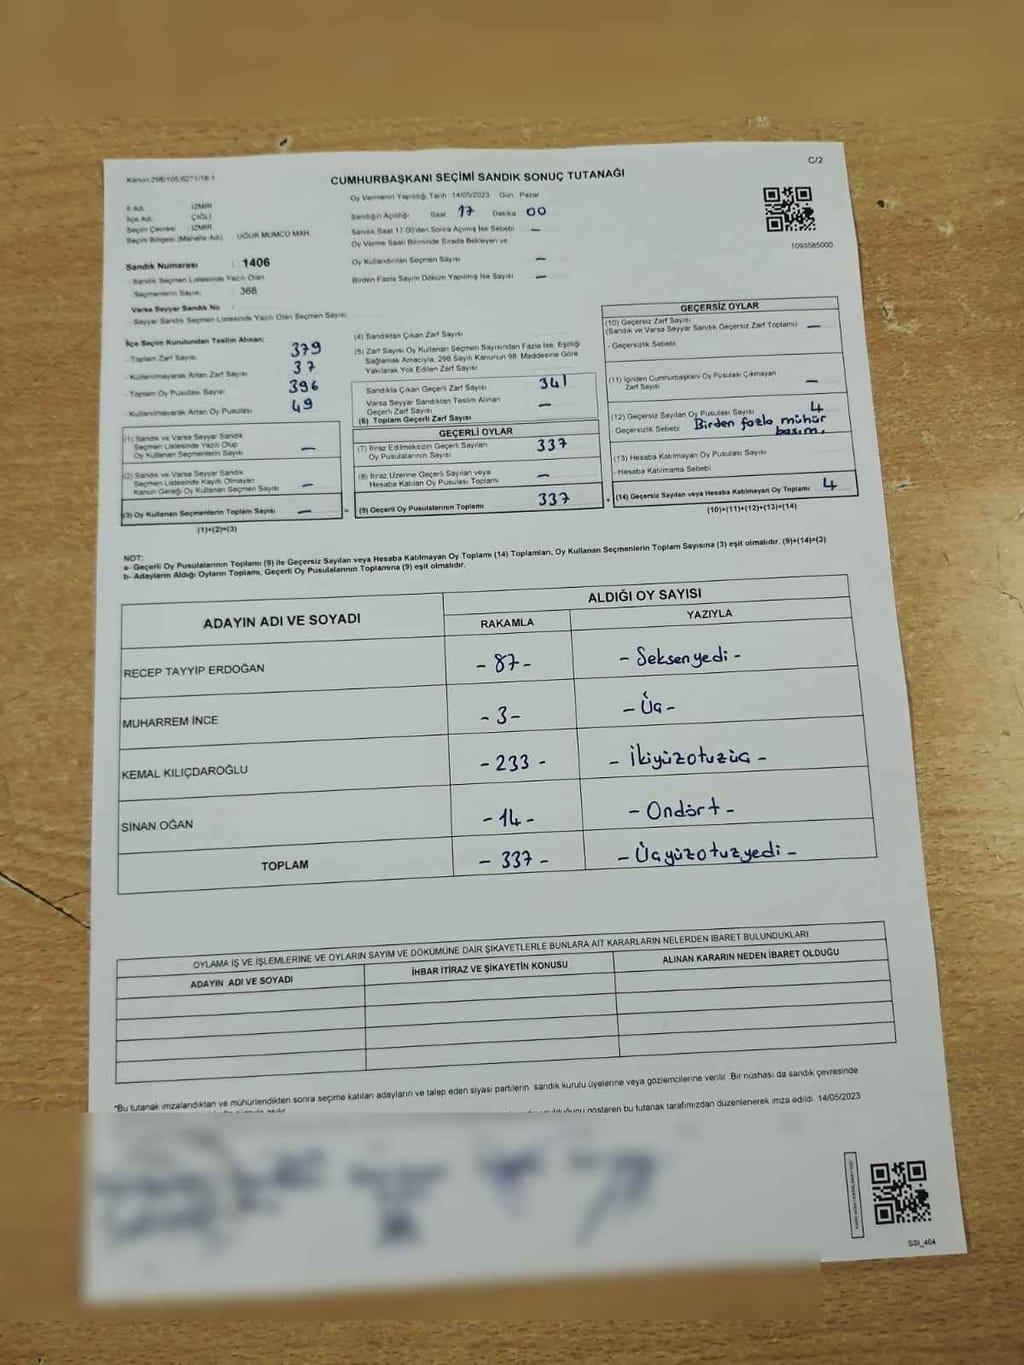 Kanun:298/105,6271/18-1
C/2
CUMHURBAŞKANI SEÇİMİ SANDIK SONUÇ TUTANAĞI
İl Adı: İZMİR
İlçe Adı: ÇİĞLİ
Seçim Çevresi: İZMİR
Seçim Bölgesi (Mahalle Adı): UĞUR MUMCU MAH.
Sandık Numarası : 1406
- Sandık Seçmen Listesinde Yazılı Olan
Seçmenlerin Sayısı: 368
Varsa Seyyar Sandık No :
- Seyyar Sandık Seçmen Listesinde Yazılı Olan Seçmen Sayısı:
Oy Vermenin Yapıldığı Tarih: 14/05/2023 Gün: Pazar
Sandığın Açıldığı: Saat 17 Dakika 00
Sandık Saat 17:00'den Sonra Açılmış İse Sebebi —
Oy Verme Saati Bitiminde Sırada Bekleyen ve
Oy Kullandırılan Seçmen Sayısı —
Birden Fazla Sayım Döküm Yapılmış İse Sayısı —
1093585000
İlçe Seçim Kurulundan Teslim Alınan;
- Toplam Zarf Sayısı: 379
- Kullanılmayarak Artan Zarf Sayısı 37
- Toplam Oy Pusulası Sayısı 396
- Kullanılmayarak Artan Oy Pusulası 49
(1) Sandık ve Varsa Seyyar Sandık
Seçmen Listesinde Yazılı Olup
Oy Kullanan Seçmenlerin Sayısı —
(2) Sandık ve Varsa Seyyar Sandık
Seçmen Listesinde Kayıtlı Olmayan
Kanun Gereği Oy Kullanan Seçmen Sayısı —
(3) Oy Kullanan Seçmenlerin Toplam Sayısı —
(1)+(2)=(3)
(4) Sandıktan Çıkan Zarf Sayısı
(5) Zarf Sayısı Oy Kullanan Seçmen Sayısından Fazla İse, Eşitliği
Sağlamak Amacıyla, 298 Sayılı Kanunun 98. Maddesine Göre
Yakılarak Yok Edilen Zarf Sayısı
Sandıkta Çıkan Geçerli Zarf Sayısı 341
Varsa Seyyar Sandıktan Teslim Alınan
Geçerli Zarf Sayısı —
(6) Toplam Geçerli Zarf Sayısı
GEÇERLİ OYLAR
(7) İtiraz Edilmeksizin Geçerli Sayılan
Oy Pusulalarının Sayısı 337
(8) İtiraz Üzerine Geçerli Sayılan veya
Hesaba Katılan Oy Pusulası Toplamı —
(9) Geçerli Oy Pusulalarının Toplamı 337
GEÇERSİZ OYLAR
(10) Geçersiz Zarf Sayısı
(Sandık ve Varsa Seyyar Sandık Geçersiz Zarf Toplamı) —
- Geçersizlik Sebebi
(11) İçinden Cumhurbaşkanı Oy Pusulası Çıkmayan
Zarf Sayısı —
(12) Geçersiz Sayılan Oy Pusulası Sayısı 4
- Geçersizlik Sebebi Birden fazla mühür
basım.
(13) Hesaba Katılmayan Oy Pusulası Sayısı
- Hesaba Katılmama Sebebi
(14) Geçersiz Sayılan veya Hesaba Katılmayan Oy Toplamı 4
(10)+(11)+(12)+(13)=(14)
NOT:
a- Geçerli Oy Pusulalarının Toplamı (9) ile Geçersiz Sayılan veya Hesaba Katılmayan Oy Toplamı (14) Toplamları, Oy Kullanan Seçmenlerin Toplam Sayısına (3) eşit olmalıdır. (9)+(14)=(3)
b- Adayların Aldığı Oyların Toplamı, Geçerli Oy Pusulalarının Toplamına (9) eşit olmalıdır.
ADAYIN ADI VE SOYADI
ALDIĞI OY SAYISI
RAKAMLA YAZIYLA
RECEP TAYYİP ERDOĞAN -87- -Seksenyedi-
MUHARREM İNCE -3- -Üç-
KEMAL KILIÇDAROĞLU -233- -İkiyüzotuzüç-
SİNAN OĞAN -14- -Ondört-
TOPLAM -337- -Üçyüzotuzyedi-
OYLAMA İŞ VE İŞLEMLERİNE VE OYLARIN SAYIM VE DÖKÜMÜNE DAİR ŞİKAYETLERLE BUNLARA AİT KARARLARIN NELERDEN İBARET BULUNDUKLARI
ADAYIN ADI VE SOYADI İHBAR İTİRAZ VE ŞİKAYETİN KONUSU ALINAN KARARIN NEDEN İBARET OLDUĞU
*Bu tutanak imzalandıktan ve mühürlendikten sonra seçime katılan adayların ve talep eden siyasi partilerin sandık kurulu üyelerine veya gözlemcilerine verilir. Bir nüshası da sandık çevresinde
gösteren bu tutanak tarafımızdan düzenlenerek imza edildi. 14/05/2023
SSI_404